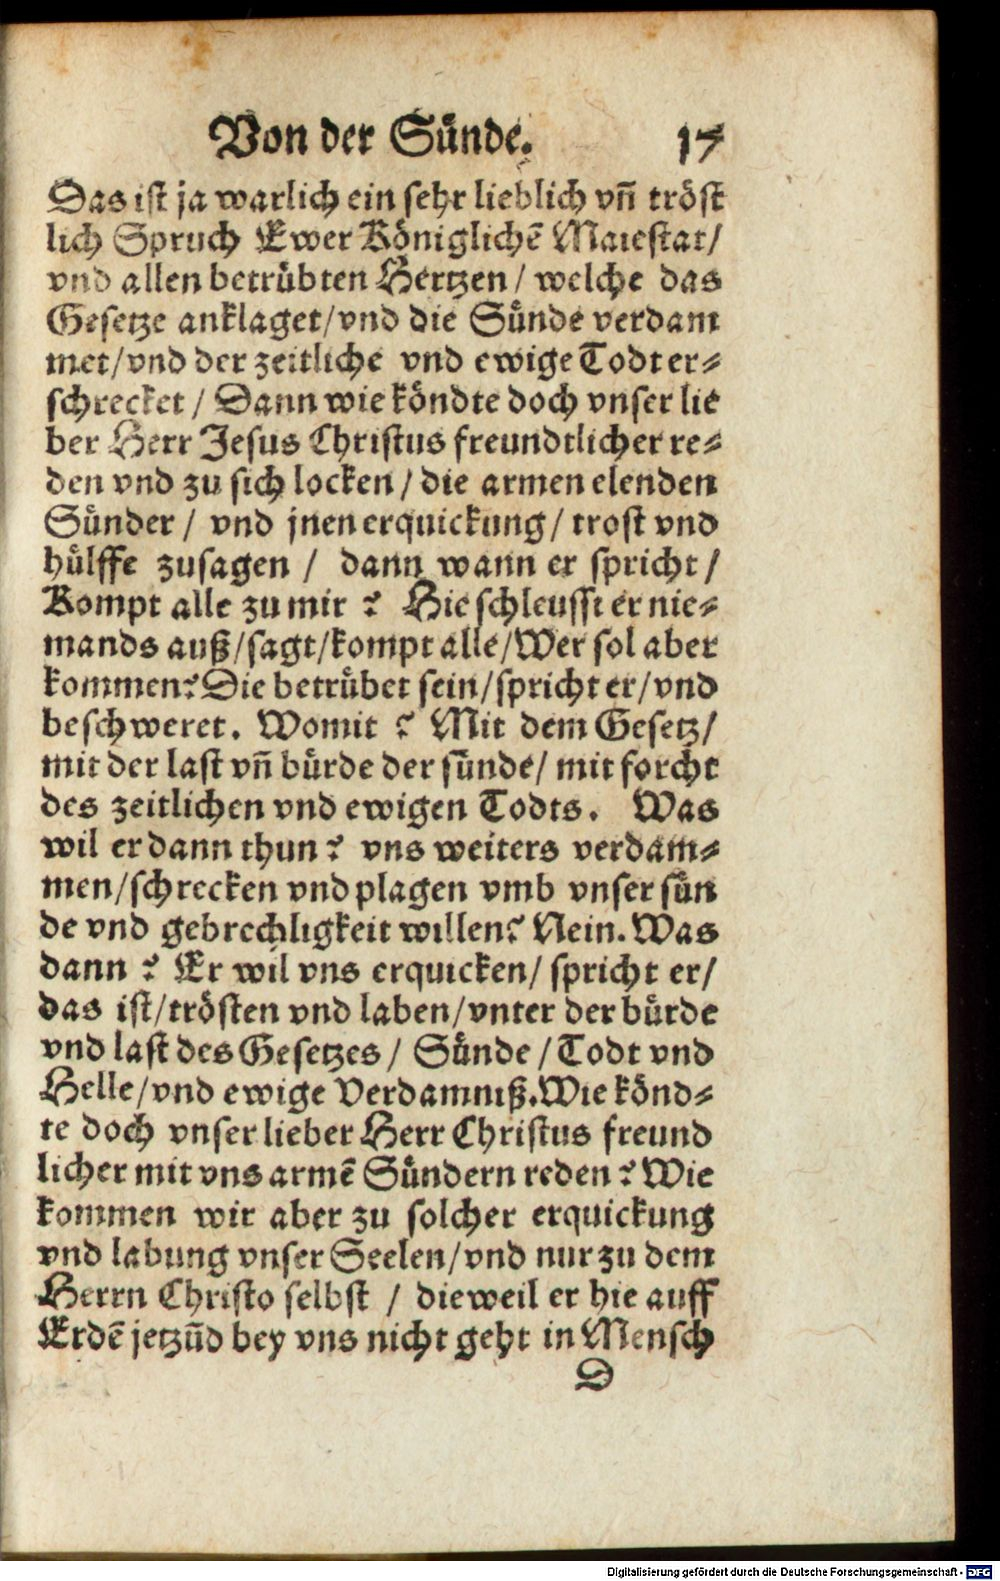 Von der Sünde. 17
Das ist ja warlich ein sehr lieblich vn̄ tröst
lich Spruch Ewer Königlichē Maiestat/
vnd allen betrübten Hertzen/ welche das
Gesetze anklaget/vnd die Sünde verdam
met/vnd der zeitliche vnd ewige Todt er⸗
schrecket/ Dann wie köndte doch vnser lie
ber Herr Jesus Christus freundtlicher re⸗
den vnd zu sich locken/ die armen elenden
Sünder/ vnd jnen erquickung/ trost vnd
hülffe zusagen/ dann wann er spricht/
Kompt alle zu mir? Hie schleusst er nie⸗
mands auß/sagt/kompt alle/Wer sol aber
kommen? Die betrübet sein/spricht er/vnd
beschweret. Womit? Mit dem Gesetz/
mit der last vn̄ bürde der sünde/ mit forcht
des zeitlichen vnd ewigen Todts. Was
wil er dann thun? vns weiters verdam⸗
men/schrecken vnd plagen vmb vnser sün
de vnd gebrechligkeit willen? Nein. Was
dann? Er wil vns erquicken/ spricht er/
das ist/trösten vnd laben/vnter der bürde
vnd last des Gesetzes/ Sünde/Todt vnd
Helle/vnd ewige Verdamniß. Wie könd⸗
te doch vnser lieber Herr Christus freund
licher mit vns armē Sündern reden? Wie
kommen wir aber zu solcher erquickung
vnd labung vnser Seelen/vnd nur zu dem
Herrn Christo selbst/ dieweil er hie auff
Erdē jetzūd bey vns nicht geht in Mensch
D
Digitalisierung gefördert durch die Deutsche Forschungsgemeinschaft - DFG